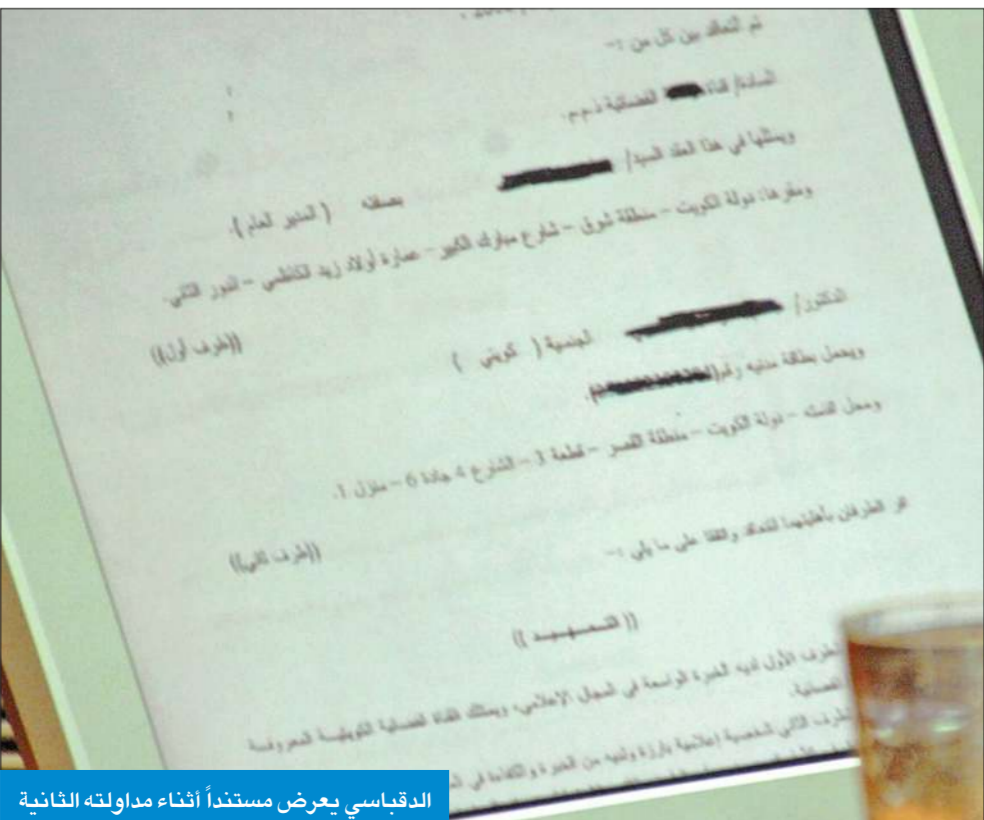 تم التعاقد بين كل من :-
السادة/ قناة الفضائية ذ.م.م.
ويمثلها في هذا العقد السيد/ بصفته ( المدير العام ).
ومقرها: دولة الكويت – منطقة شرق – شارع مبارك الكبير – عمارة أولاد زيد الكاظمي – الدور الثاني.
((طرف أول))
الدكتور/ الجنسية ( كويتي )
ويحمل بطاقة مدنية رقم(
ومحل – دولة الكويت – منطقة القصر – قطعة 3 – الشارع 4 جادة 6 – منزل 1.
((طرف ثاني))
اقر الطرفان بأهليتهما للتعاقد واتفقا على ما يلي :-
(( التـمـهـيـد ))
الطرف الأول لديه الخبرة الواسعة في المجال الإعلامي، ويمتلك القناة الفضائية الكويتية المعروفة
الفضائية.
الطرف الثاني شخصية إعلامية بارزة ولديه من الخبرة والكفاءة في
الدقباسي يعرض مستنداً أثناء مداولته الثانية